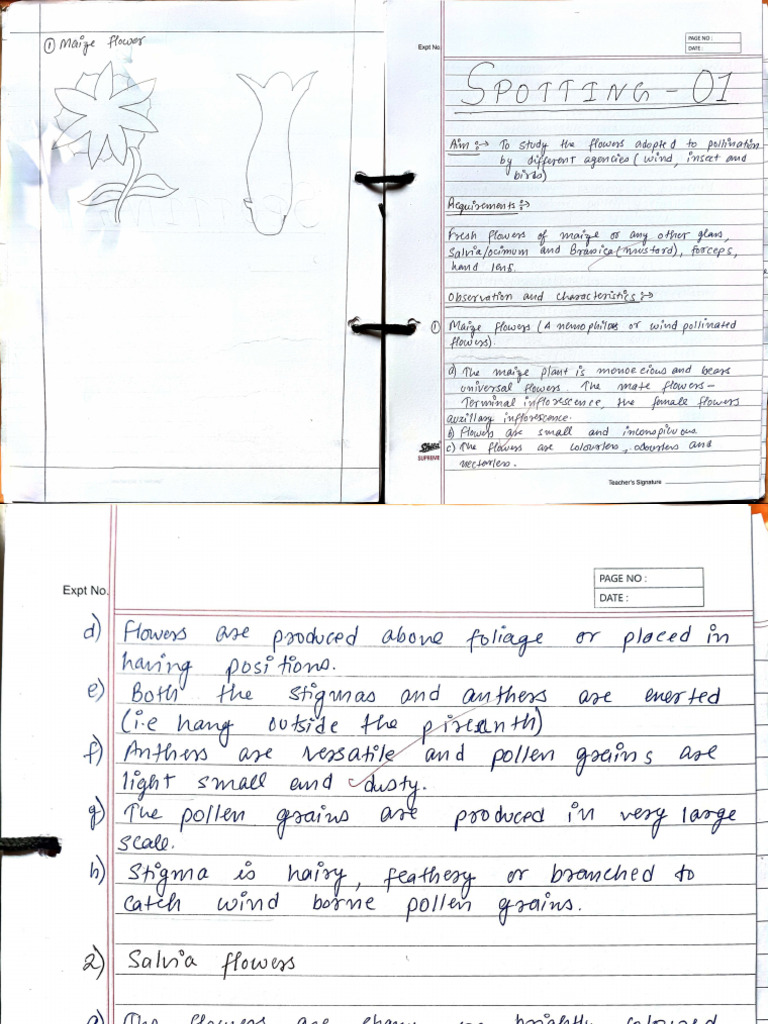 ① Maize flower
Expt No.
PAGE NO :
DATE :
SPOTTING - 01
Aim :→ To study the flowers adopted to pollination
by different agencies ( wind, insect and
birds)
Requirements :→
Fresh flowers of maize or any other glass,
Salvia/ocimum and Brassica (mustord), forceps,
hand lens.
Observation and characteristics :→
① Maize flowers ( A nemophilas or wind pollinated
flowers).
a) The maize plant is monoecious and bears
universal flowers. The mate flowers -
Terminal inflorescence, the female flowers
auxillary inflorescence.
b) Flowers are small and inconspicuous.
c) The flowers are colourless, odourless and
nectarless.
SUPREME
Teacher's Signature
Expt No.
PAGE NO :
DATE :
d) Flowers are produced above foliage or placed in
having positions.
e) Both the stigmas and anthers are exerted
(i.e hang outside the
f) Anthers are versatile and pollen grains are
light small and dusty.
g) The pollen grains are produced in very large
scale.
h) Stigma is hairy, feathery or branched to
catch wind borne pollen grains.
2) Salvia flowers
a) The flowers are brightly coloured